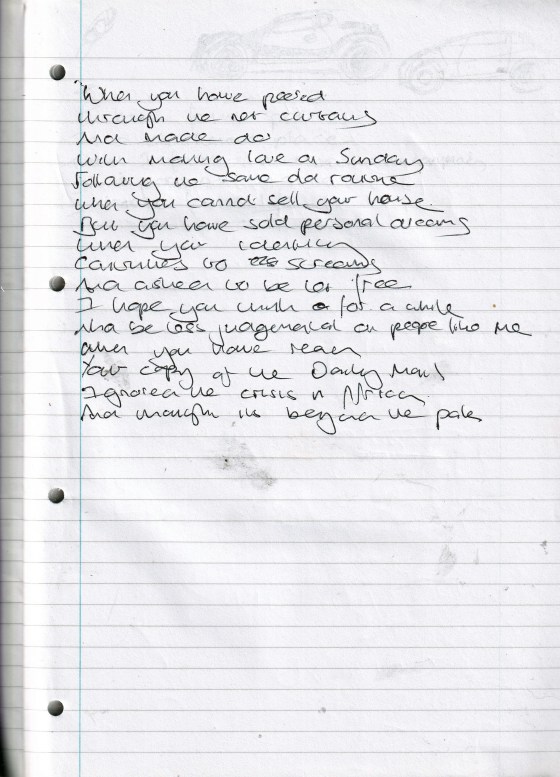 When you have peered
through the net curtains
And made do
With making love on Sunday
Following the same old routine
When you cannot sell your house.
But you have sold personal dreams
When your identity
Continues to screams
And asked to be let free
I hope you think for a while
And be less judgemental on people like me
When you have read
Your copy of the Daily Mail
Ignored the crisis in Africa
And thought its beyond the pale